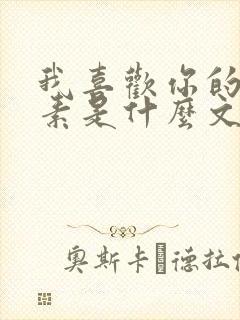 我喜歡你的
素是什麼文
奧斯卡 德拉